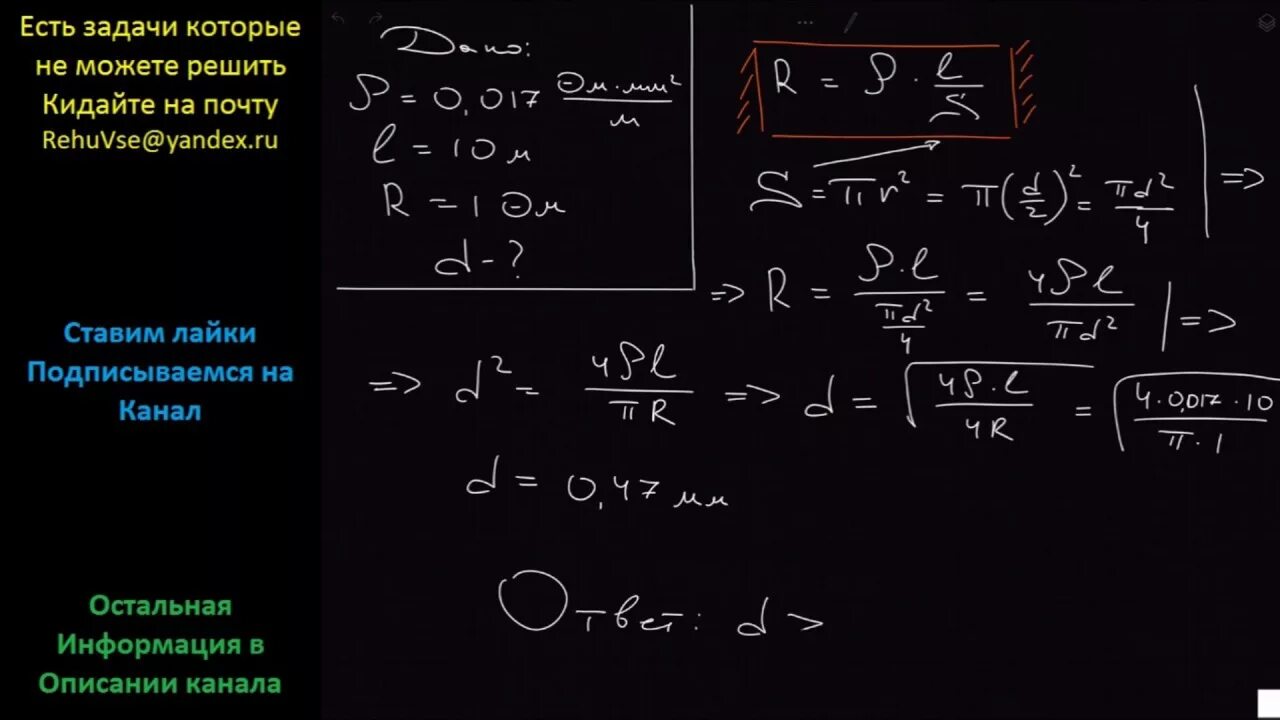 Есть задачи которые
не можете решить
Кидайте на почту
RehuVse@yandex.ru
Ставим лайки
Подписываемся на
Канал
Остальная
Информация в
Описании канала
Дано:
ρ = 0,017 Ом·мм²/м
l = 10 м
R = 1 Ом
d - ?
R = ρ · l/S
S = πr² = π(d/2)² = πd²/4 | =>
=> R = ρ·l/(πd²/4) = 4ρl/πd² | =>
=> d² = 4ρl/πR => d = √(4ρ·l/4R) = √(4·0,017·10/π·1)
d = 0,47 мм
Ответ: d >